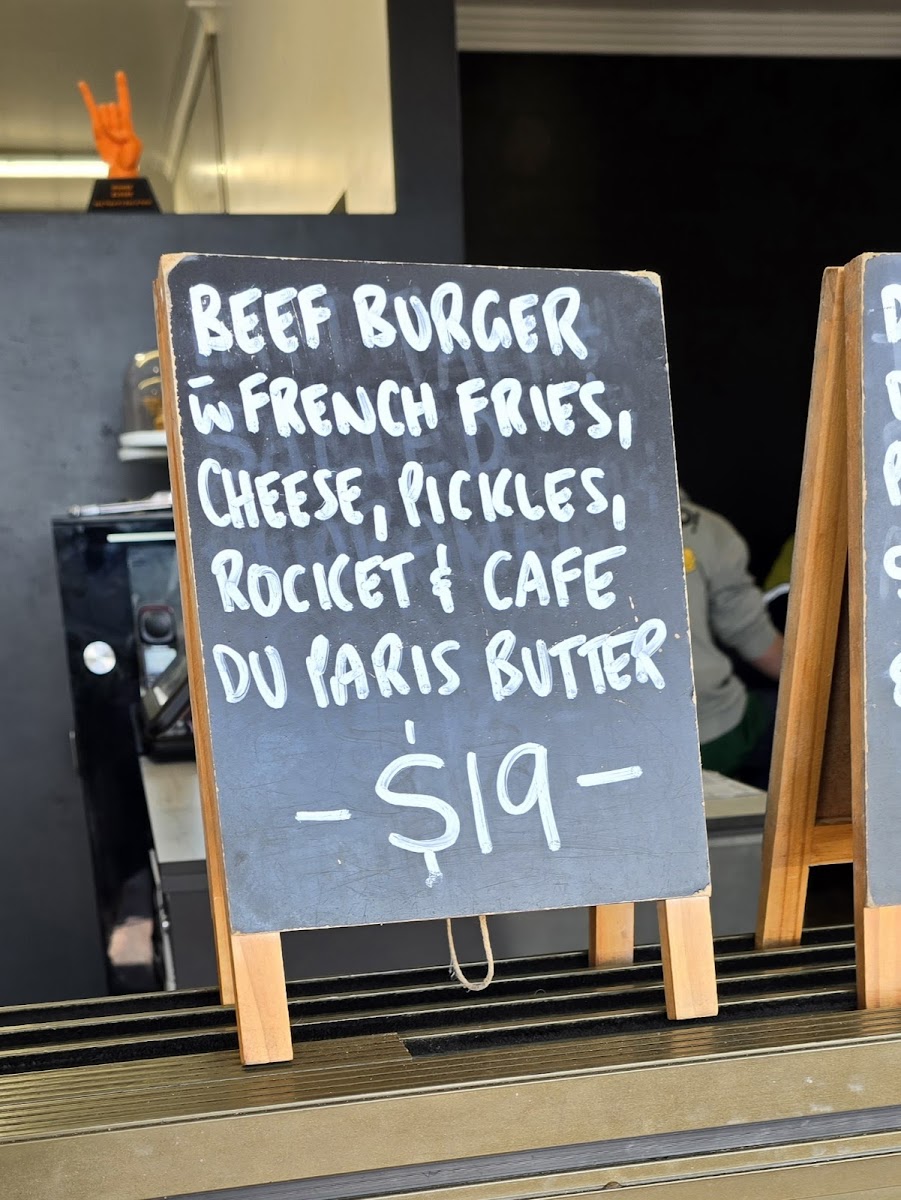 BEEF BURGER
w̄ FRENCH FRIES,
CHEESE, PICKLES,
ROCKET & CAFE
DU PARIS BUTTER
- $19 -